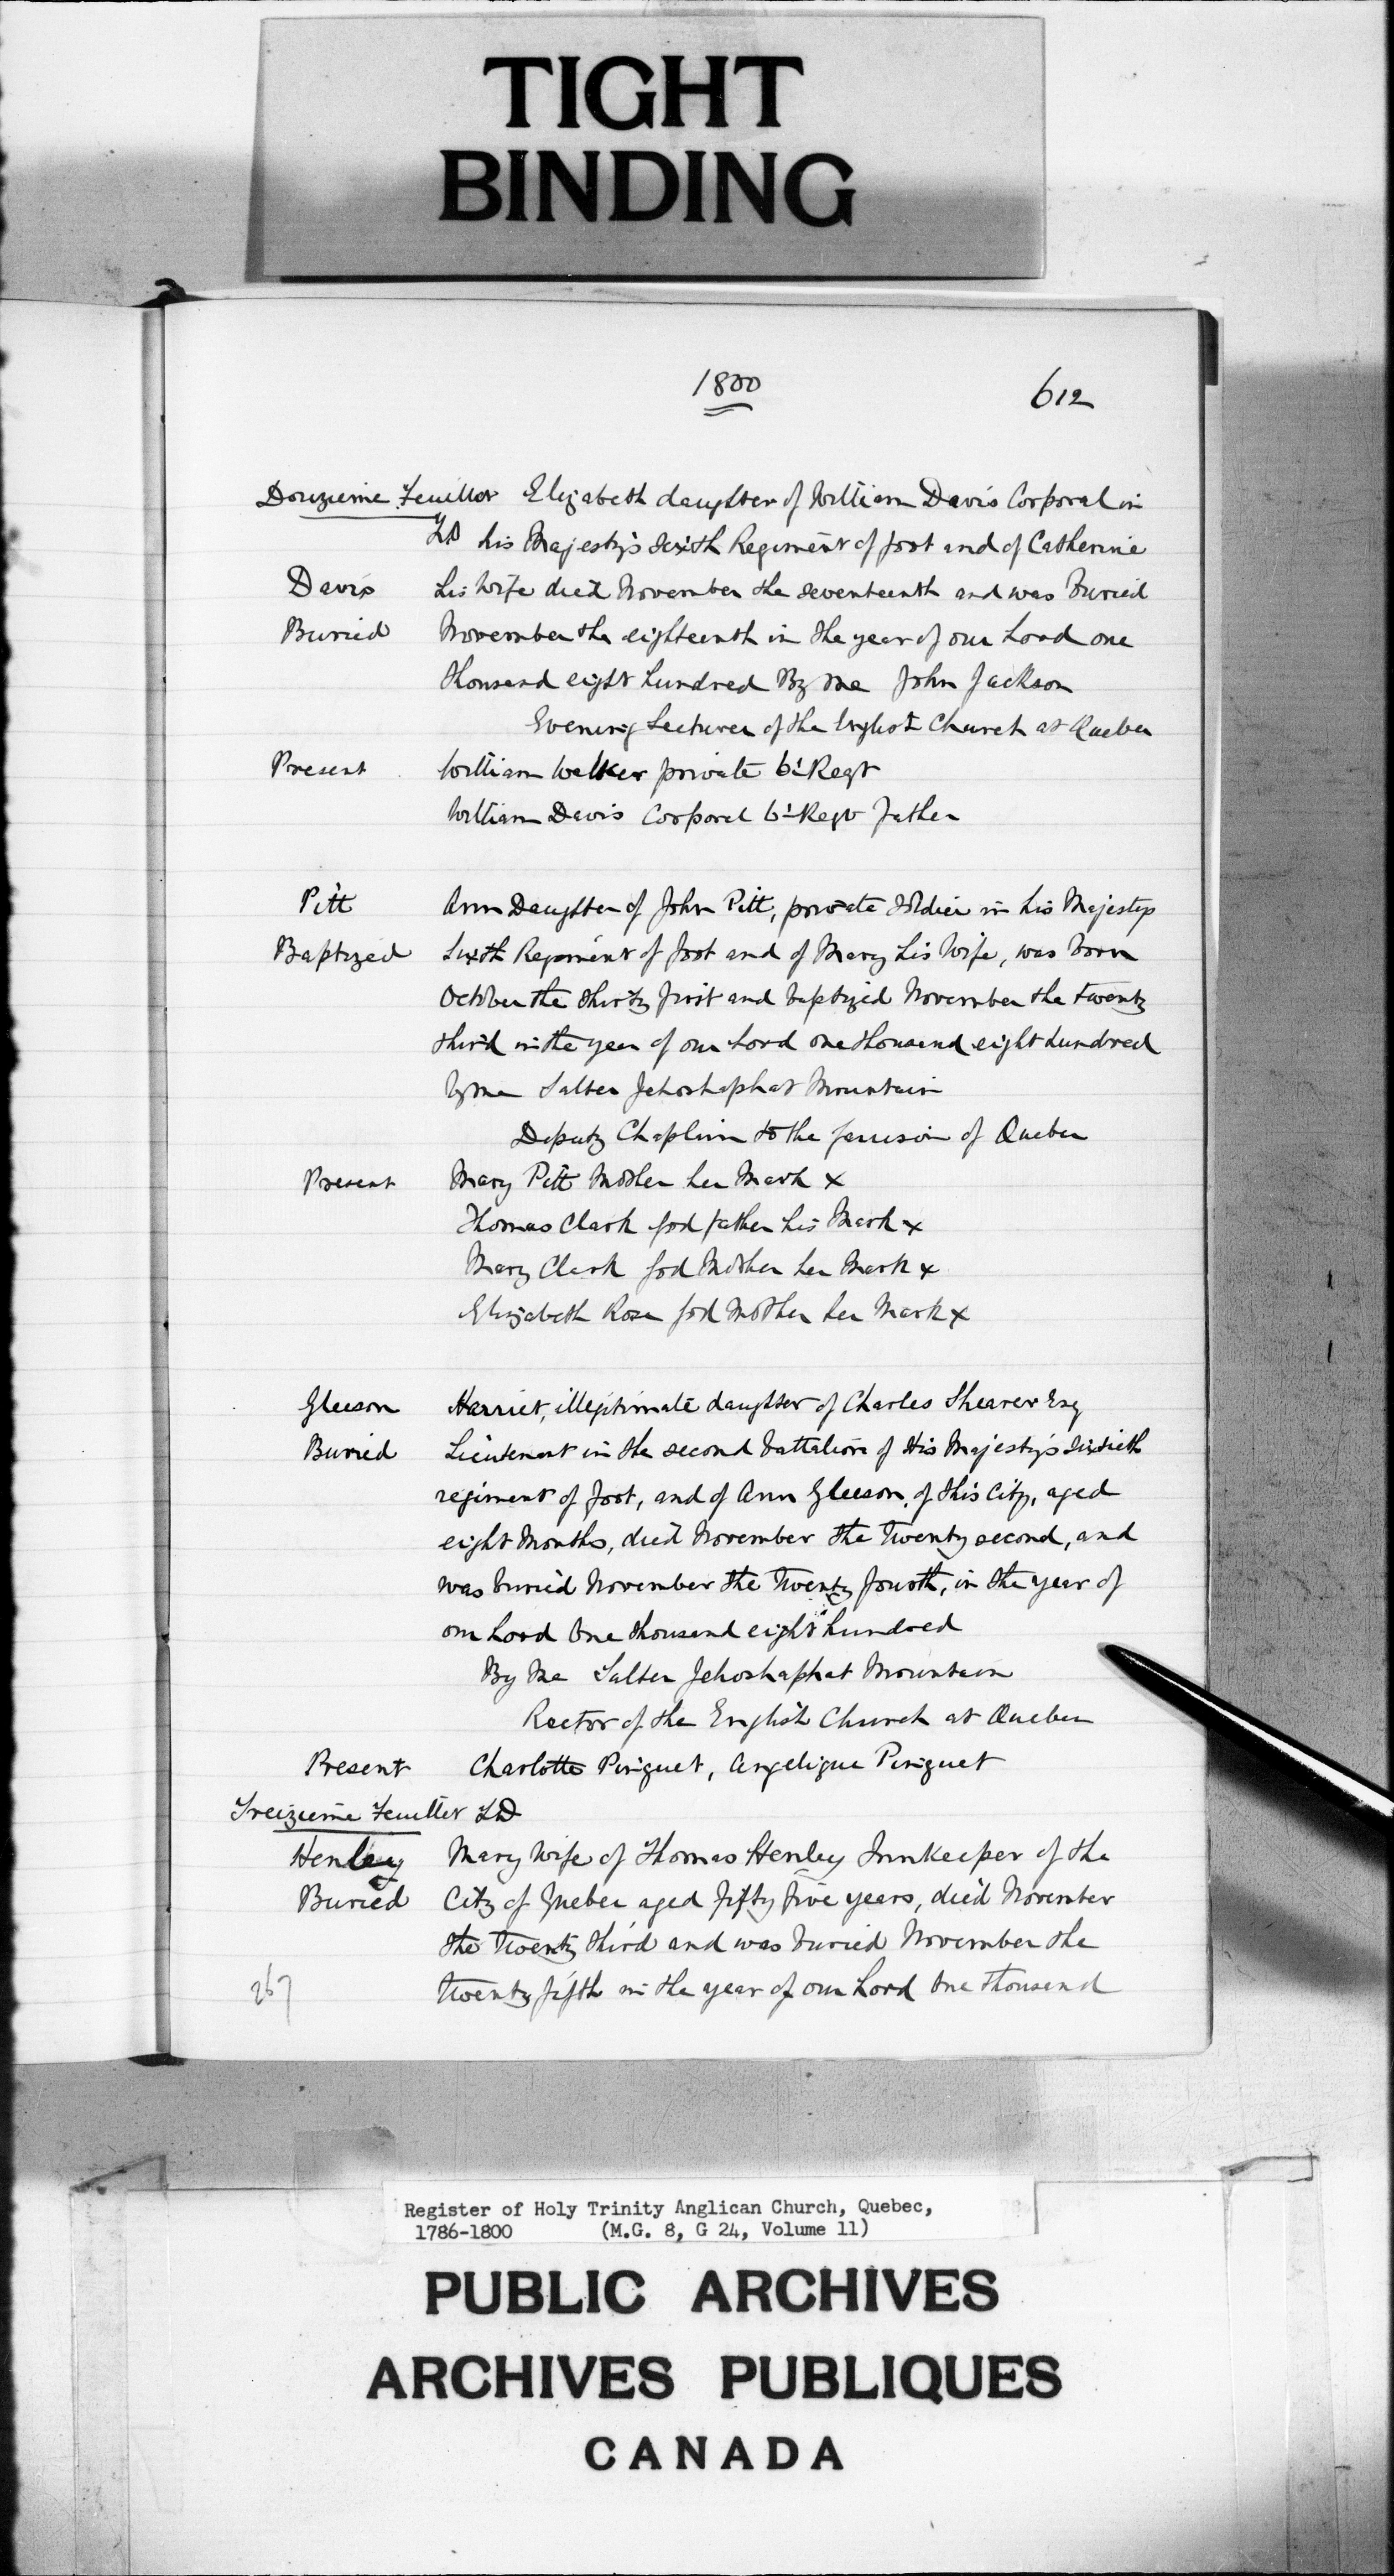 TIGHT
BINDING
1800
612
Douzieme Feuillet Elizabeth daughter of William Davis Corporal in
LD his Majesty's Sixth Regiment of foot and of Catherine
Davis his Wife died November the seventeenth and was buried
Buried November the eighteenth in the year of our Lord one
thousand eight hundred By me John Jackson
Evening Lecturer of the English Church at Quebec
Present William Walker private 6th Regt
William Davis Corporal 6th Regt Father
Pitt Ann Daughter of John Pitt, private soldier in his Majestys
Baptized Sixth Regiment of foot and of Mary his Wife, was born
October the thirty first and baptized November the twenty
third in the year of our Lord one thousand eight hundred
by me Salter Jehoshaphat Mountain
Deputy Chaplin to the Garrison of Quebec
Present Mary Pitt Mother her Mark x
Thomas Clark God father his Mark x
Mary Clark God Mother her Mark x
Elizabeth Rose God Mother her Mark x
Gleeson Harriet, illegitimate daughter of Charles Shearer Esq
Buried Lieutenant in the second battalion of His Majesty's Sixtieth
regiment of foot, and of Ann Gleeson, of this City, aged
eight Months, died November the Twenty second, and
was buried November the Twenty fourth, in the year of
our Lord One thousand eight hundred
By Me Salter Jehoshaphat Mountain
Rector of the English Church at Quebec
Present Charlotte Piriguet, Angelique Piriguet
Treizieme Feuillet LD
Henley Mary Wife of Thomas Henley Innkeeper of the
Buried City of Quebec aged fifty five years, died November
the Twenty third and was buried November the
267 Twenty fifth in the year of our Lord One thousand
Register of Holy Trinity Anglican Church, Quebec,
1786-1800 (M.G. 8, G 24, Volume 11)
PUBLIC ARCHIVES
ARCHIVES PUBLIQUES
CANADA